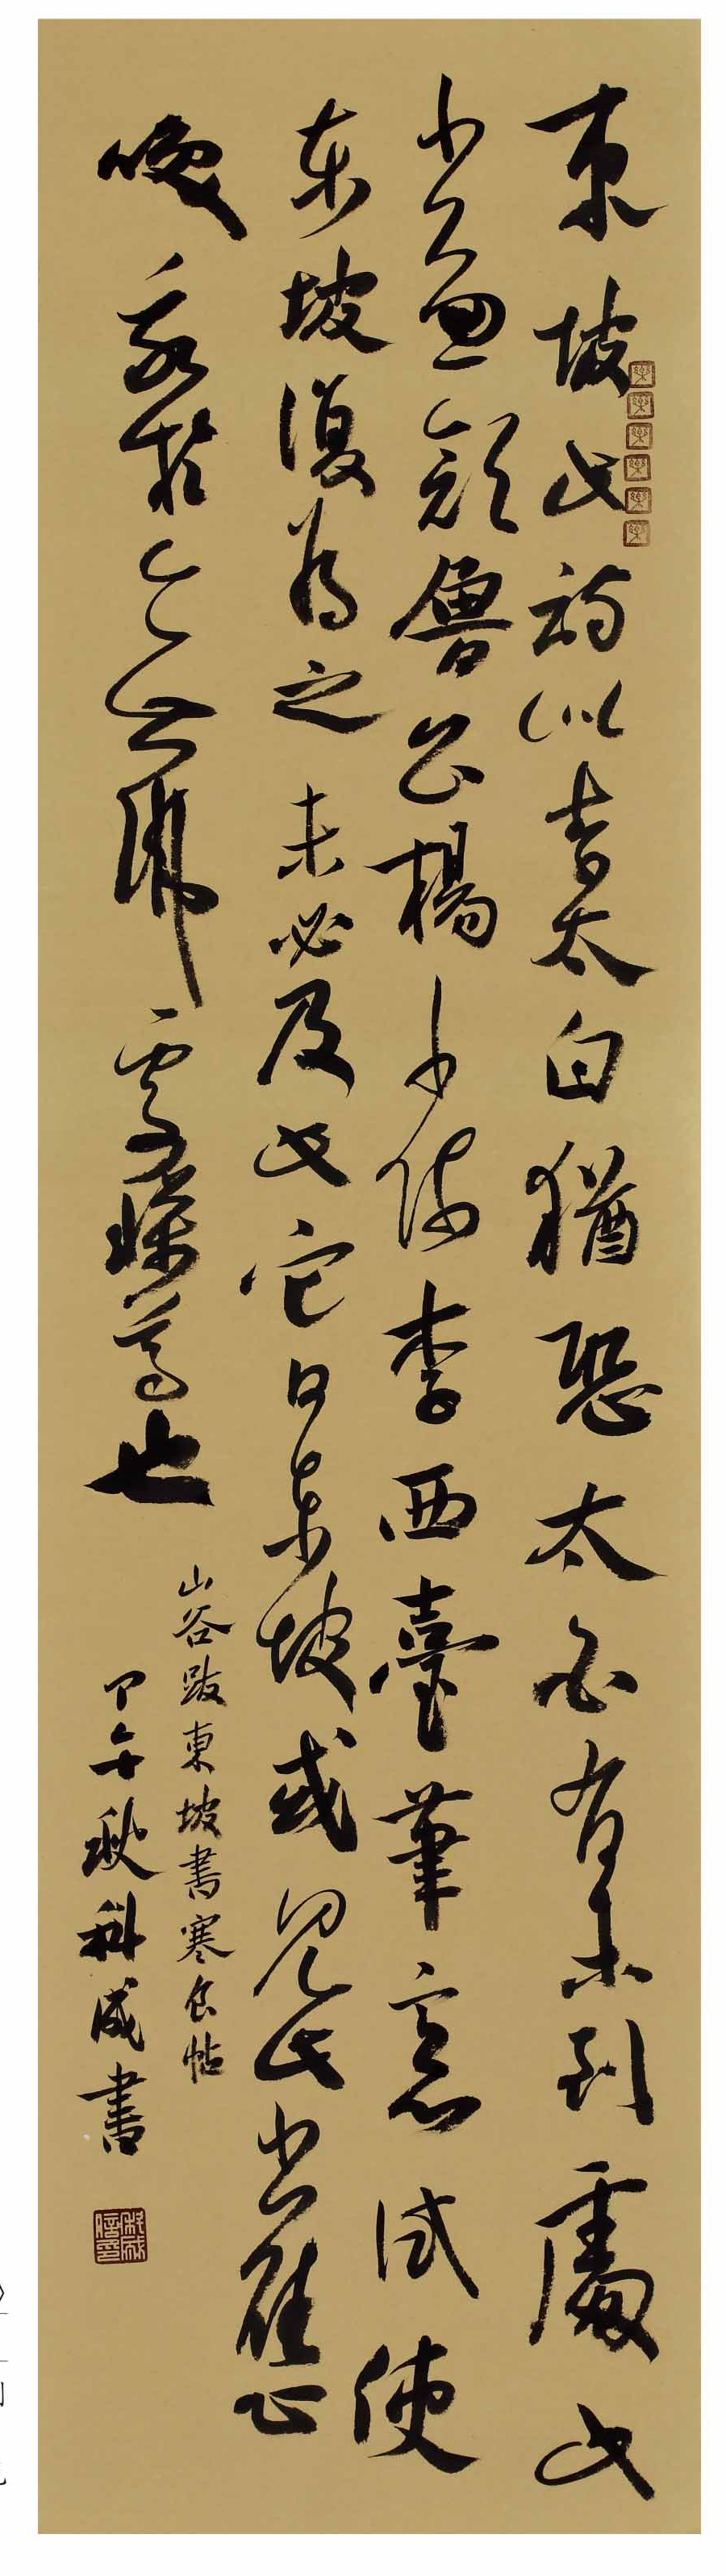 東坡此詩似李太白猶恐太白有未到處此
書兼顏魯公楊少師李西臺筆意試使
東坡復為之未必及此它日東坡或見此書應
咲我於無佛處稱尊也
山谷跋東坡書寒食帖
甲午秋科成書